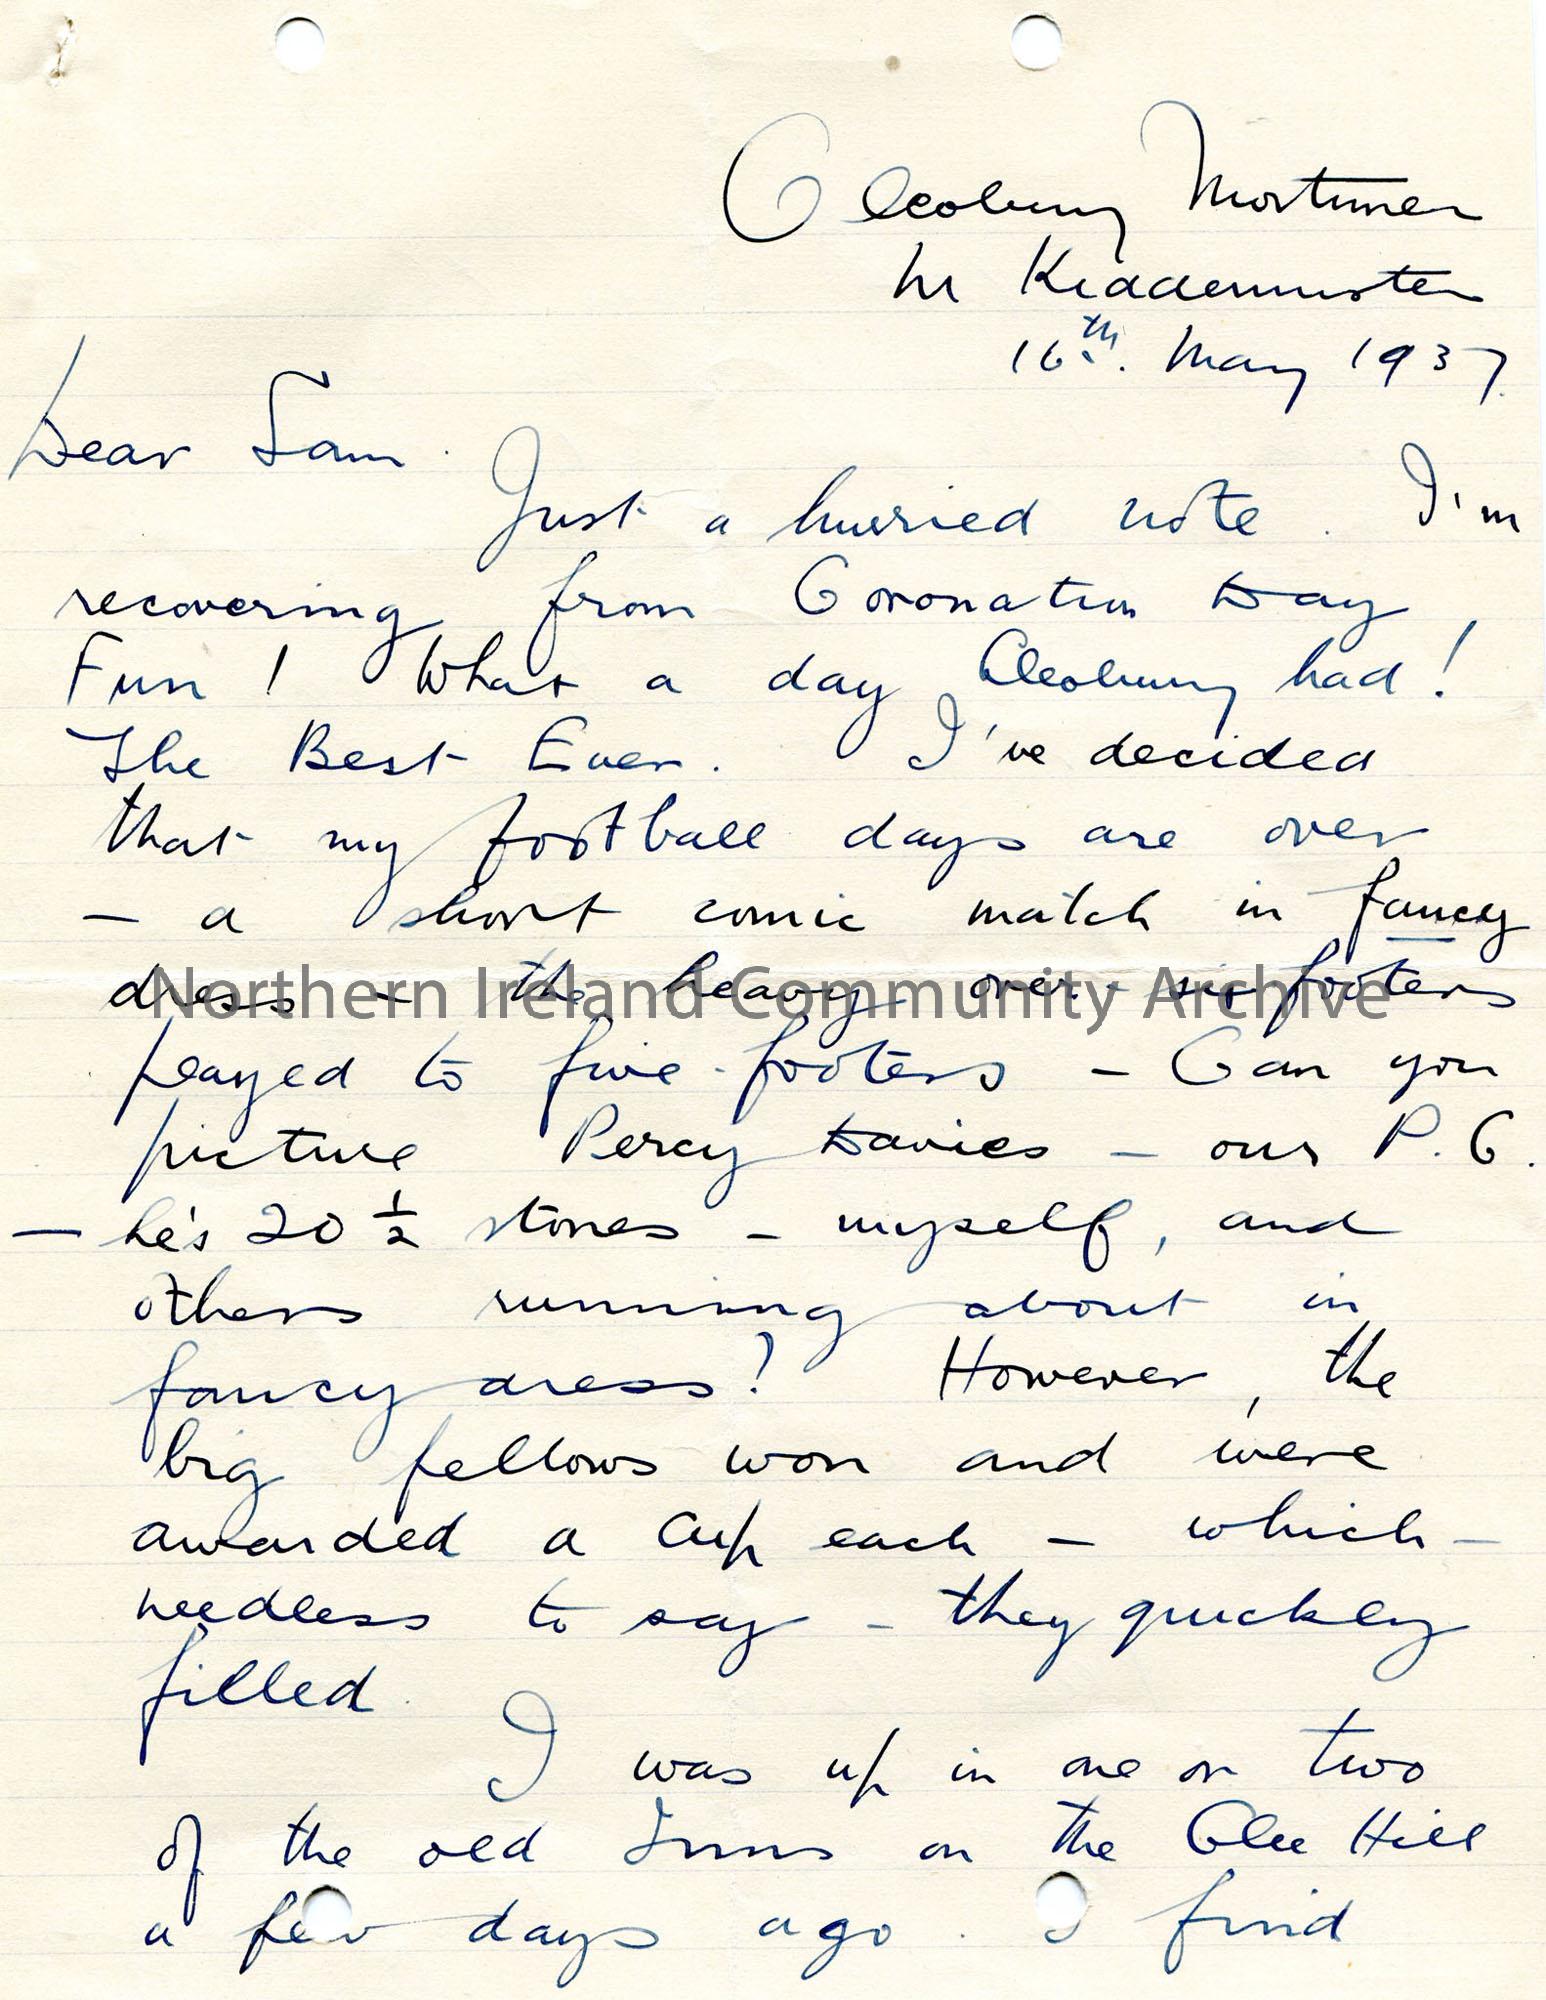 Cleobury Mortimer
Nr Kidderminster
16th. May 1937.
Dear Sam.
Just a hurried note. I'm
recovering from Coronation Day
Fun! What a day Cleobury had!
The Best Ever. I've decided
that my football days are over
- a short comic match in fancy
dress - the heavy over-six footers
played to five-footers - Can you
picture Percy Davies - our P.C.
- he's 20 1/2 stones - myself, and
others running about in
fancy dress? However, the
big fellows won and were
awarded a Cup each - which -
needless to say - they quickly
filled.
I was up in one or two
of the old Inns on the Clee Hill
a few days ago. I find
Northern Ireland Community Archive